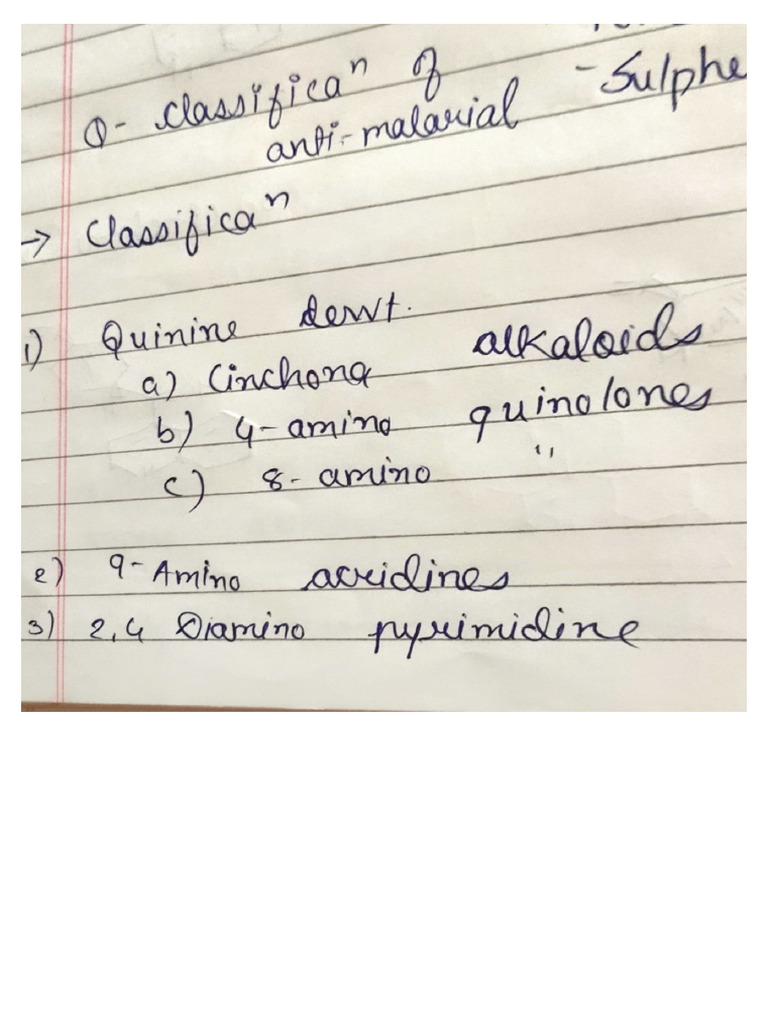 Q- Classifica^n of
anti-malarial
- Sulphe
→ Classifica^n
1) Quinine
a) Cinchona alkaloids
b) 4-amino quinolones
c) 8-amino "
2) 9-Amino acridines
3) 2,4 Diamino pyrimidine